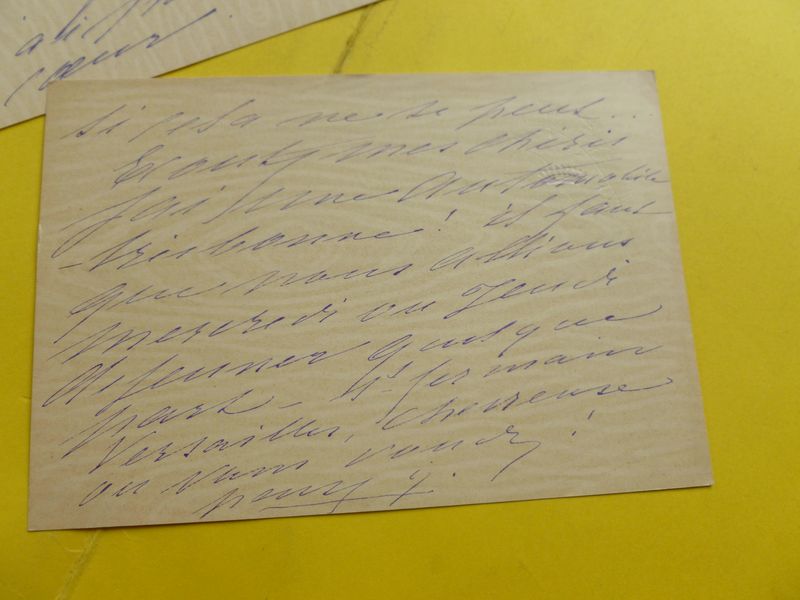 à
cœur.
si cela ne se peut..
Ecoutez mes chéris
j'ai une automobile
très bonne! il faut
que nous allions
mercredi ou Jeudi
déjeuner quelque
part - St Germain
Versailles, Chevreuse
ou vous voudrez!